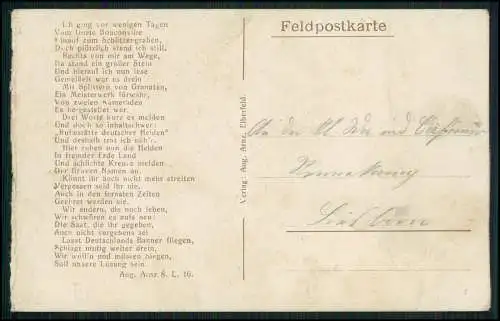 Ich ging vor wenigen Tagen
Vom Orote Bouconville
Hinauf zum Schützengraben,
Doch plötzlich stand ich still.
Rechts von mir am Wege,
Da stand ein großer Stein
Und hierauf ich nun lese
Gemeißelt war es drein
Mit Splittern von Granaten,
Ein Meisterwerk fürwahr,
Von zweien Kameraden
Es hergestellet war.
Drei Worte kurz es melden
Und doch so inhaltschwer:
"Ruhestätte deutscher Helden"
Und deshalb trat ich näh'r.
Hier ruhen nun die Helden
In fremder Erde Land
Und schlichte Kreuze melden
Der Braven Namen an.
Könnt ihr auch nicht mehr streiten
Vergessen seid ihr nie.
Auch in den fernsten Zeiten
Geehret werden sie.
Wir andern, die noch leben,
Wir schwören es aufs neu:
Die Saat, die ihr gegeben,
Auch nicht vergebens sei
Lasst Deutschlands Banner fliegen,
Schlagt mutig weiter drein,
Wir woll'n und müssen siegen,
Soll unsere Losung sein.
Aug. Arnz 8. L. 16.
Verlag: Aug. Arnz, Elberfeld.
Feldpostkarte
An die
und